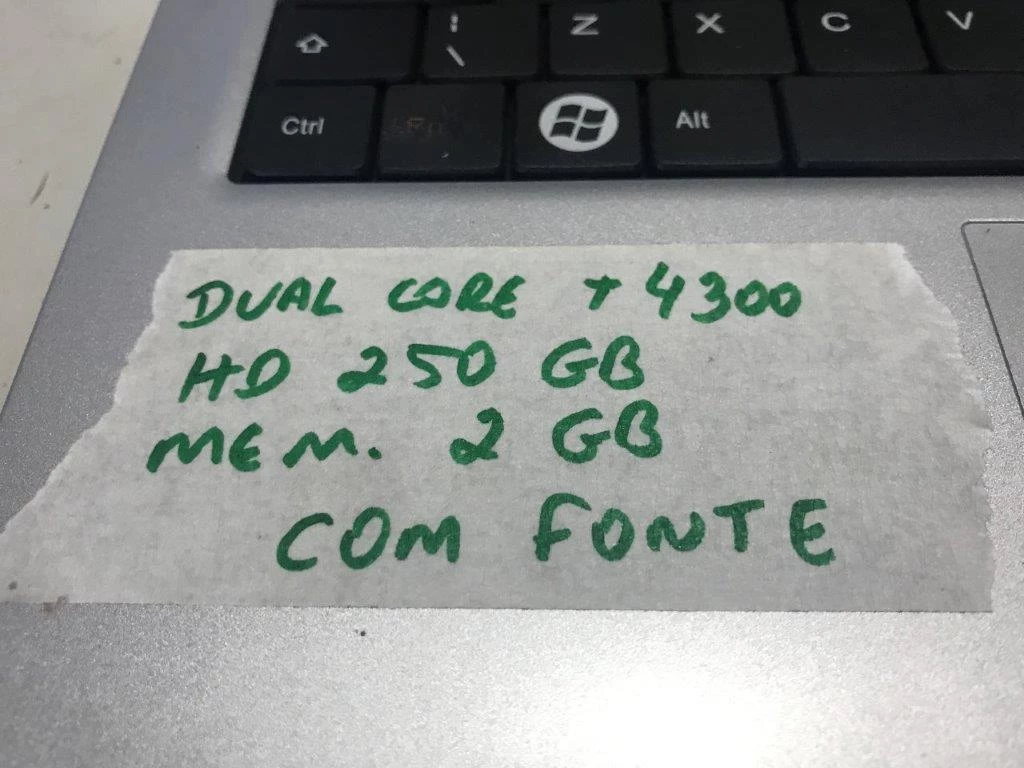 ! Z X C V
\
Ctrl Fn Alt
DUAL CORE T4300
HD 250 GB
MEM. 2 GB
COM FONTE